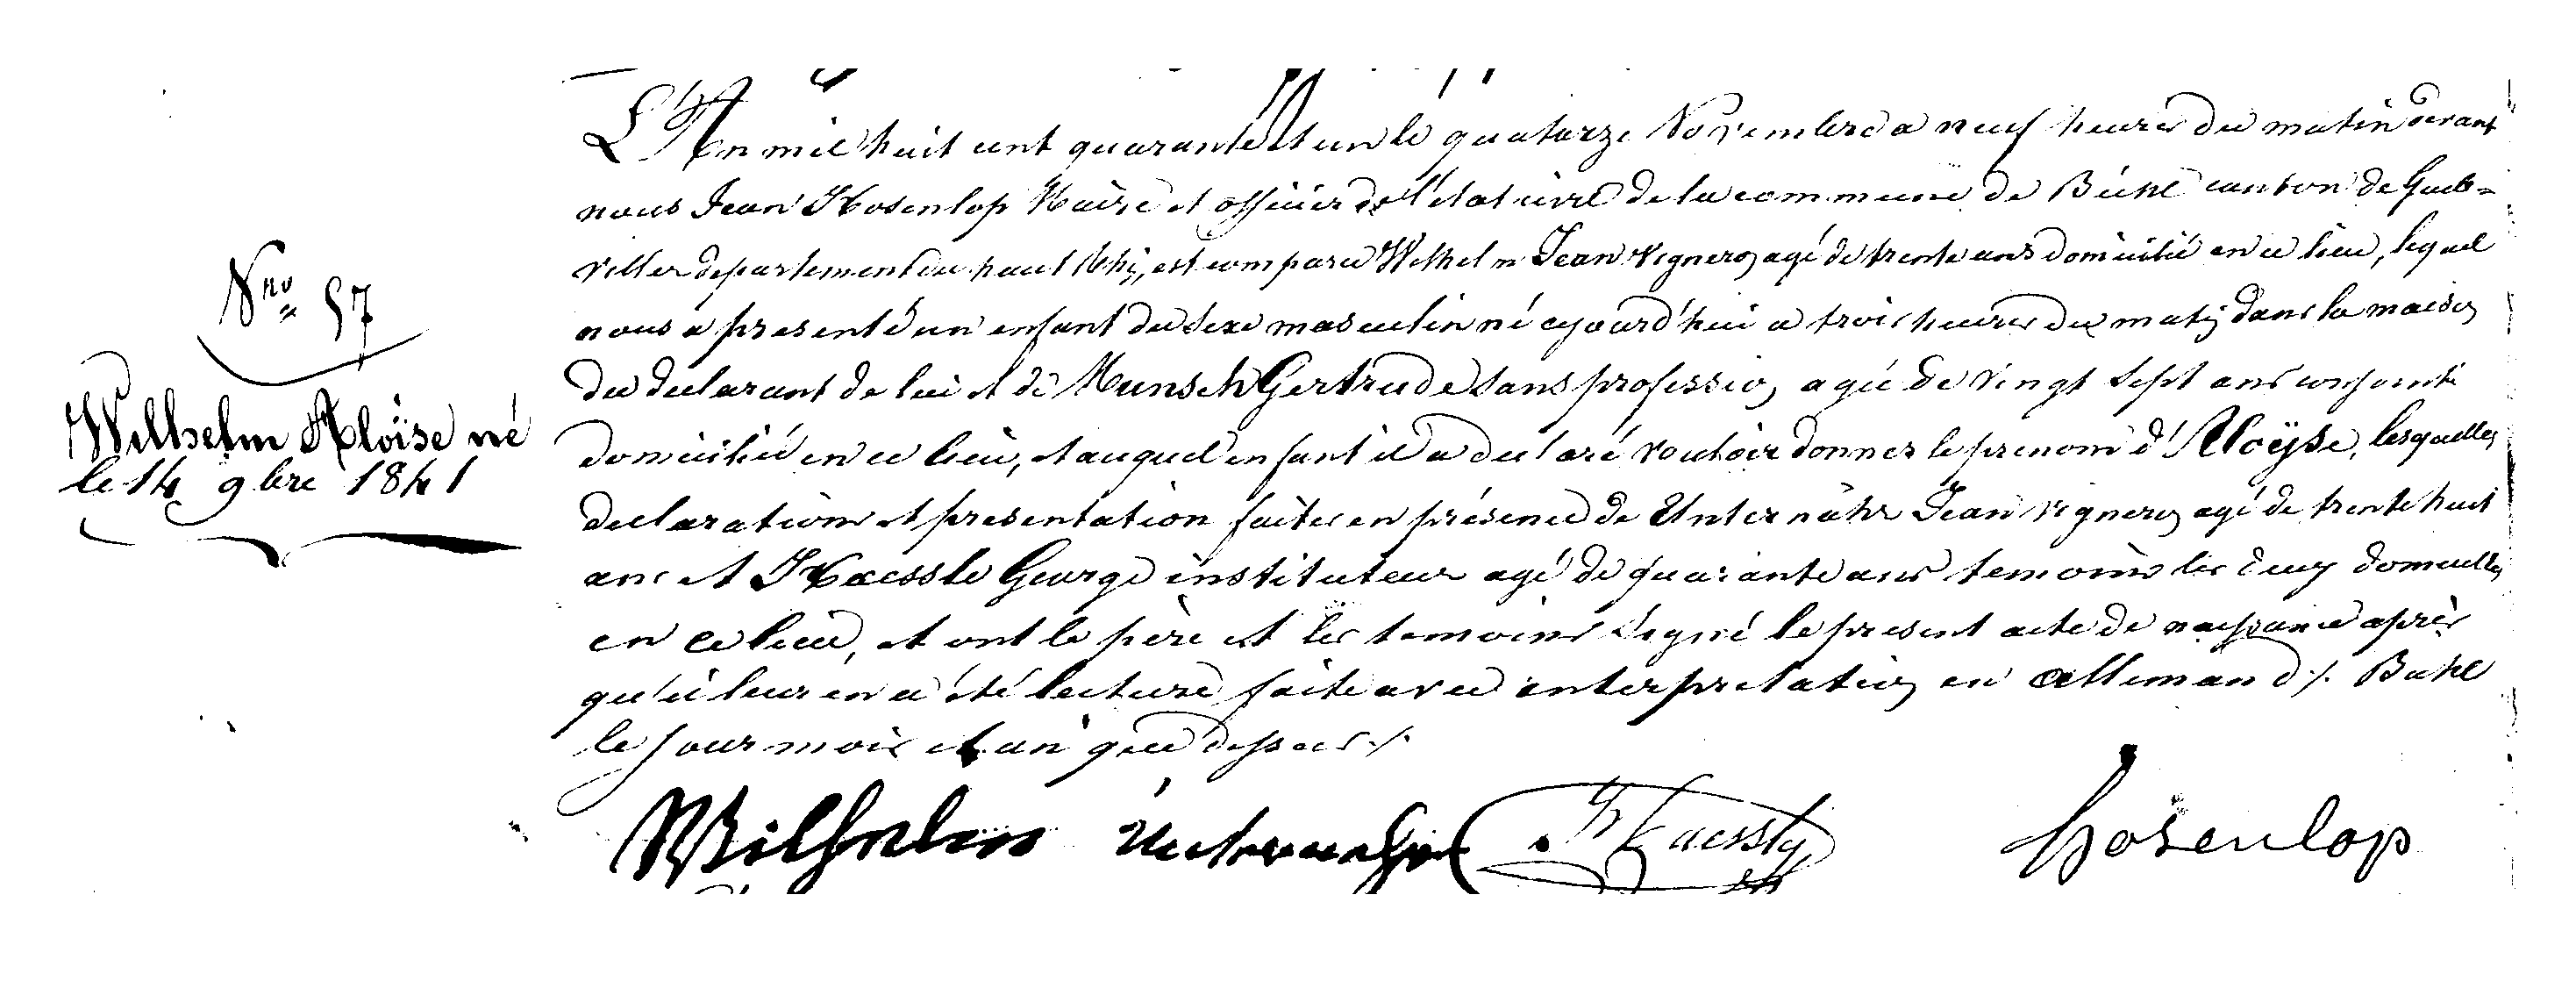 Nro 57
Wilhelm Aloïse né
le 14 9bre 1841
L'An mil huit cent quarante et un le quatorze Novembre a neuf heures du matin devant
nous Jean Hosenlop Maire et officier de l'état civil de la commune de Bühl canton de Gueb=
viller departement du haut Rhin, est comparu Wilhelm Jean vigneron agé de trente ans domicilié en ce lieu, lequel
nous a presenté un enfant du sexe masculin né ajourd'hui a trois heures du matin dans la maison
du declarant de lui et de Munsch Gertrude sans profession agée de vingt sept ans conjoints
domicilié en ce lieu, et auquel enfant il a declaré vouloir donner le prenom d'Aloÿse, lesquelles
declarations et presentation faites en présence de Unternähr Jean vigneron agé de trente huit
ans et Haessle George instituteur agé de quarante ans temoins les deux domicilles
en ce lieu, et ont le père et les temoins signé le present acte de naissance après
qu'il leur en a été lecture faite avec interpretation en allemand ./. Buhl
le jour mois et an que dessus ./.
Wilhelm Unternähr Haessly Hosenlop